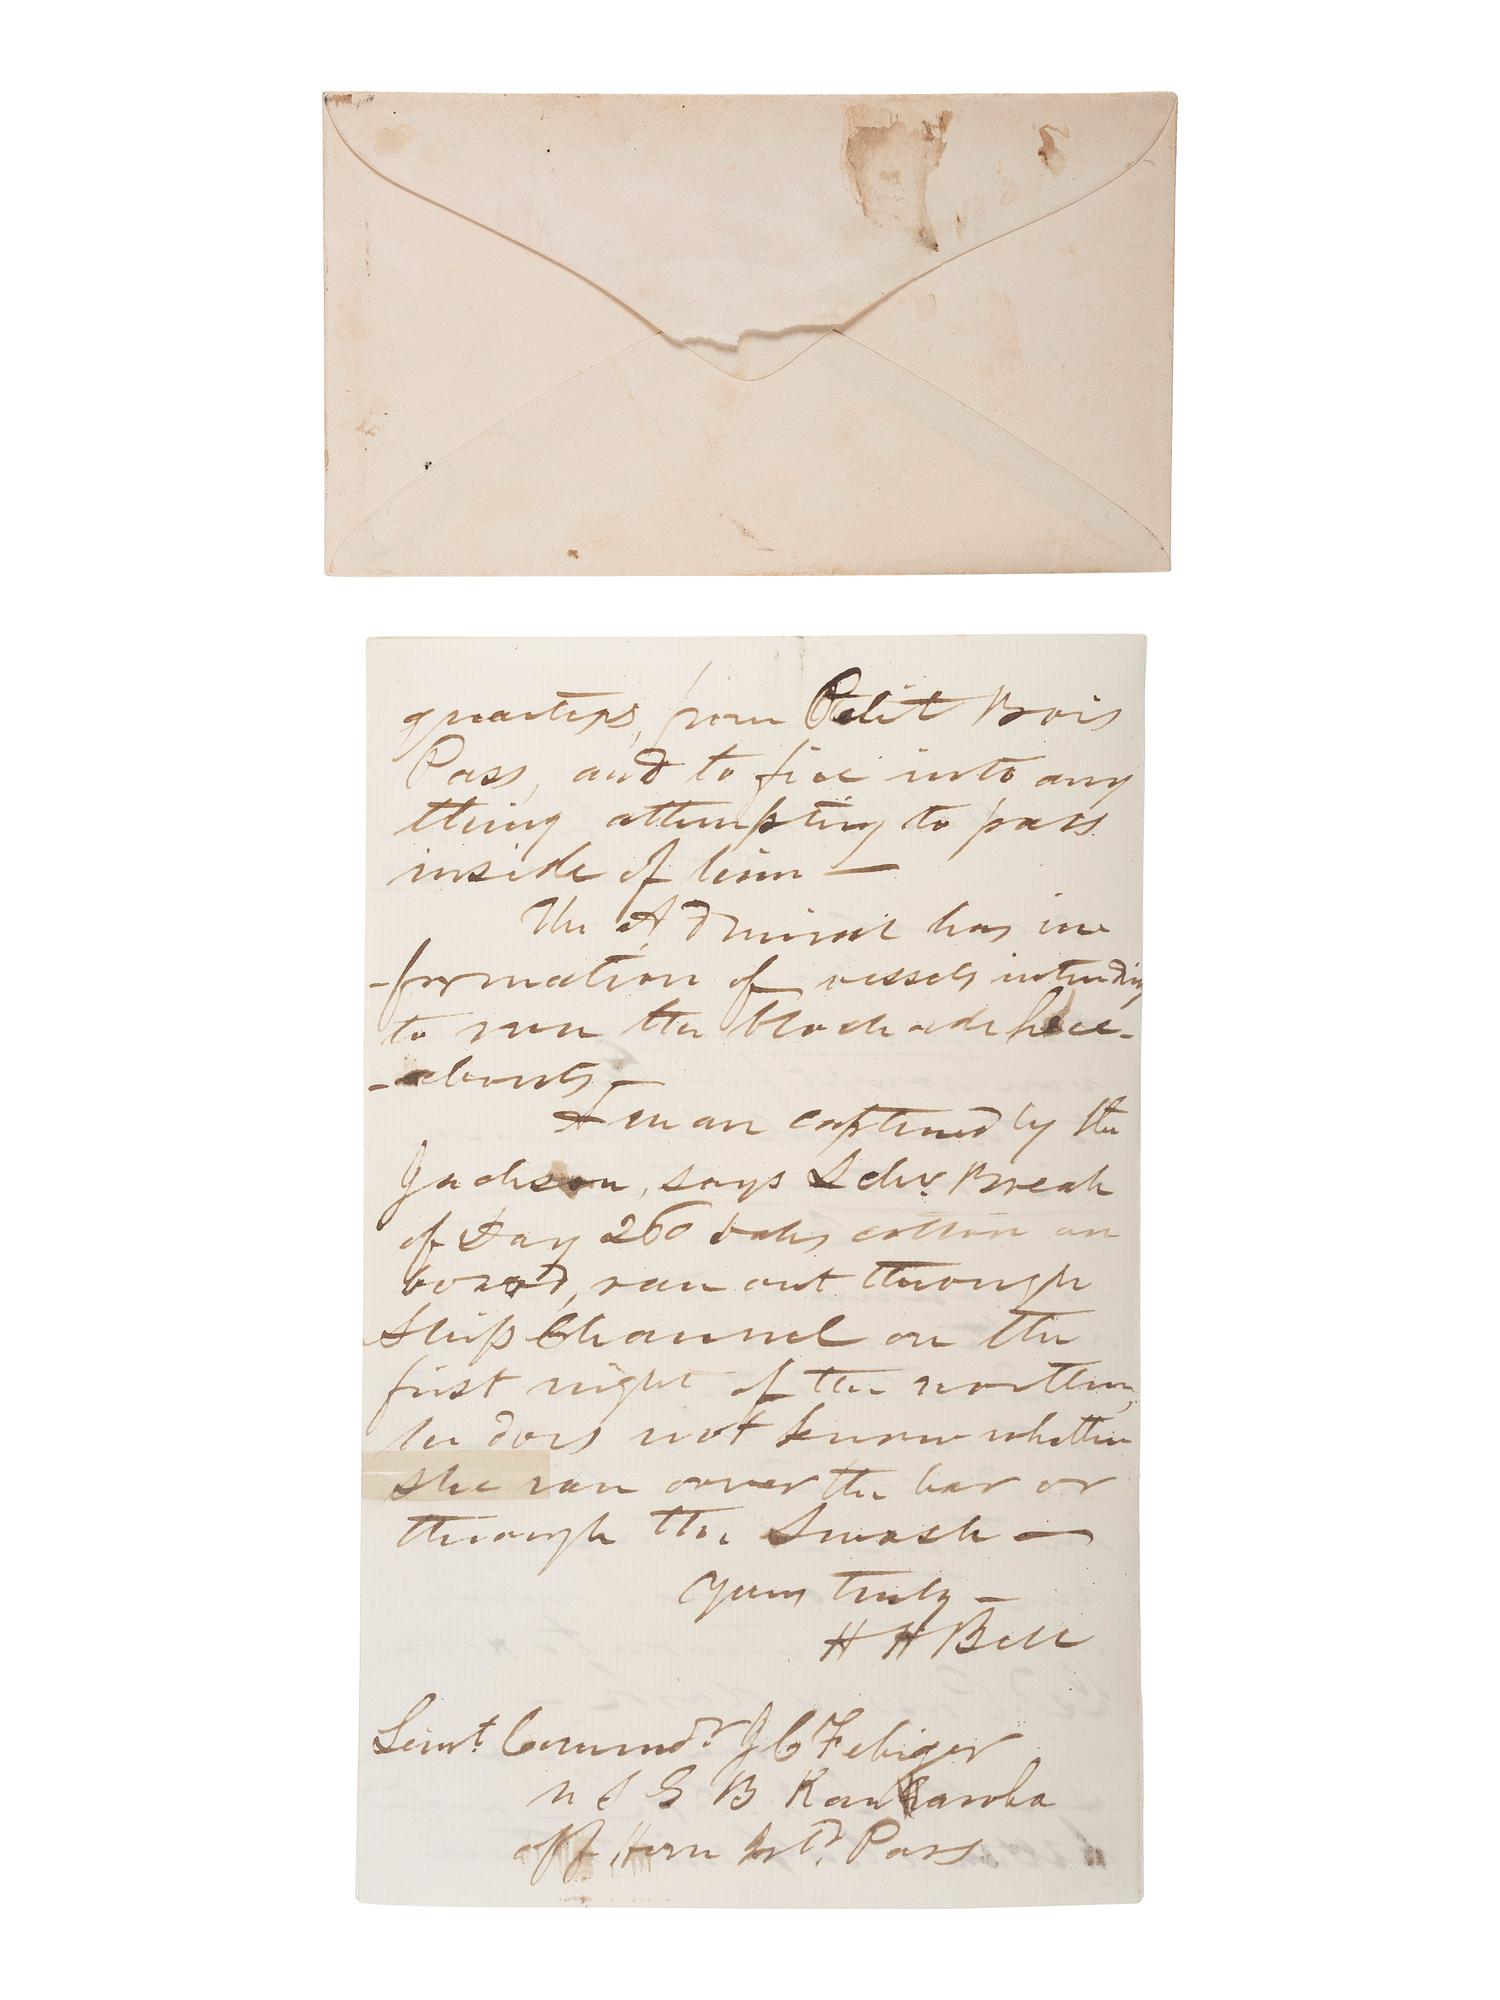 quarters, from Petit Bois
Pass, and to fire into any
thing attempting to pass
inside of him —
The Admiral has in
-formation of vessels intending
to run the blockade here-
-abouts —
A man captured by the
Jackson, says Schr. Break
of Day 260 bales cotton on
board, ran out through
Ship Channel on the
first night of the norther,
he does not know whether
she ran over the bar or
through the Swash —
Yours truly —
H H Bell
Lieut Commdr J C Febiger
U S G B Kanhawha
off Horn Isld. Pass